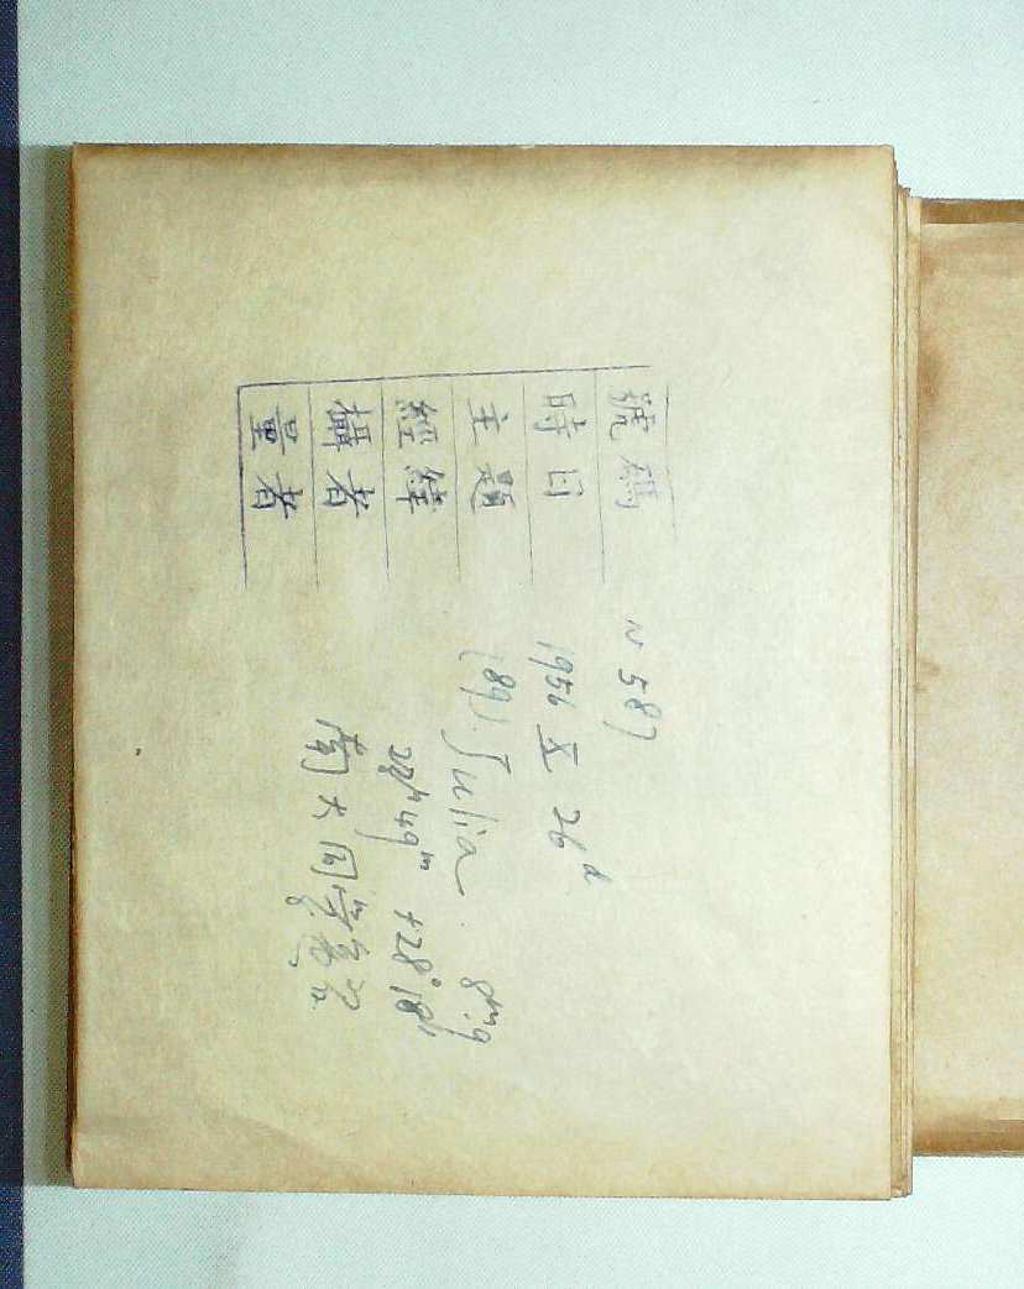 號碼 N 587
時日 1956 X 26d
主題 (89). Julia. 8m.9
經緯 22h49m +28°18'
攝者 南大同學
量者